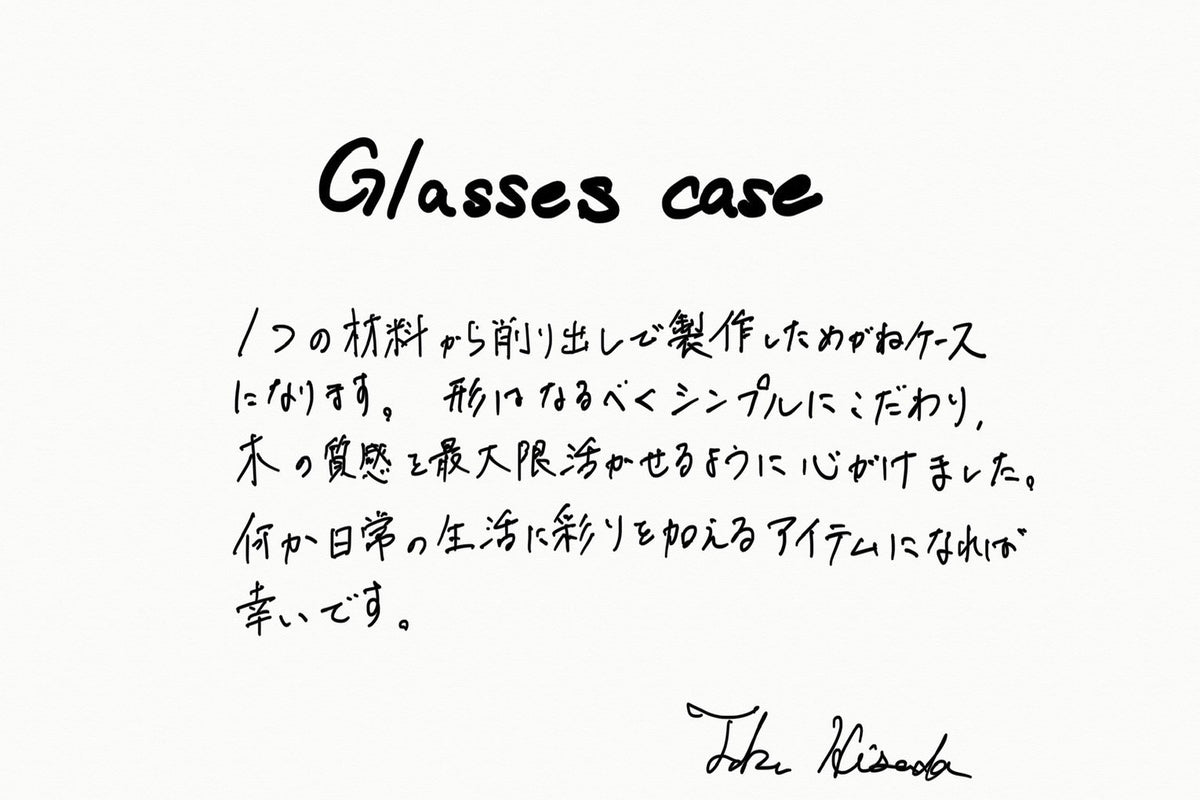 Glasses case
1つの材料から削り出しで製作しためがねケース
になります。 形はなるべくシンプルにこだわり,
木の質感を最大限活かせるように心がけました。
何か日常の生活に彩りを加えるアイテムになれば
幸いです。
Hisada